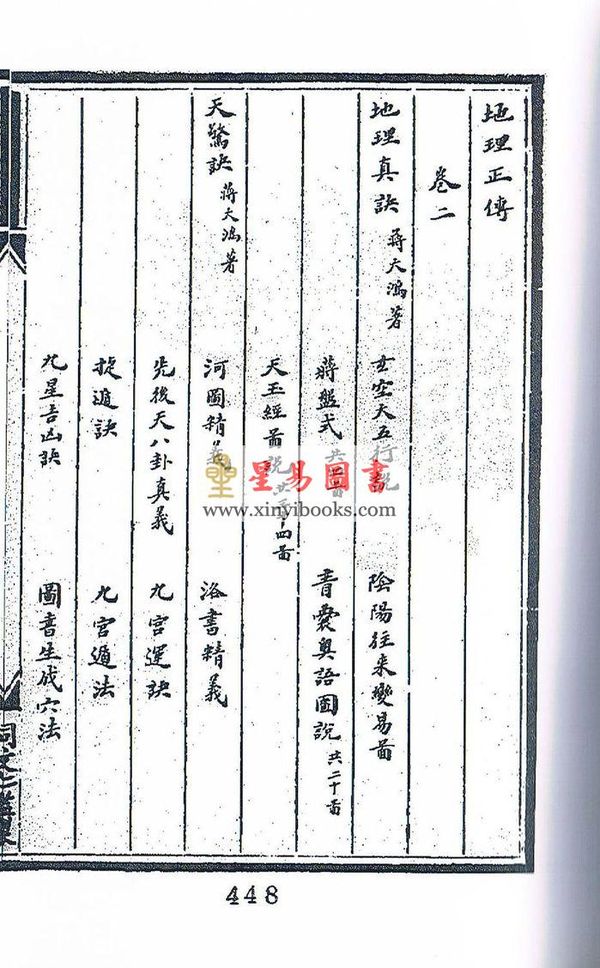 地理正傳
卷二
地理真訣 蔣大鴻著 玄空大五行說 陰陽往來變易啚
蔣盤式 青囊奧語圖說 共二十啚
天玉經啚說
天驚訣 蔣大鴻著 河圖精義 洛書精義
先後天八卦真義 九宮運訣
捉遁訣 九宮遁法
九星吉凶訣 圖書生成穴法
星易圖書
www.xinyibooks.com
448